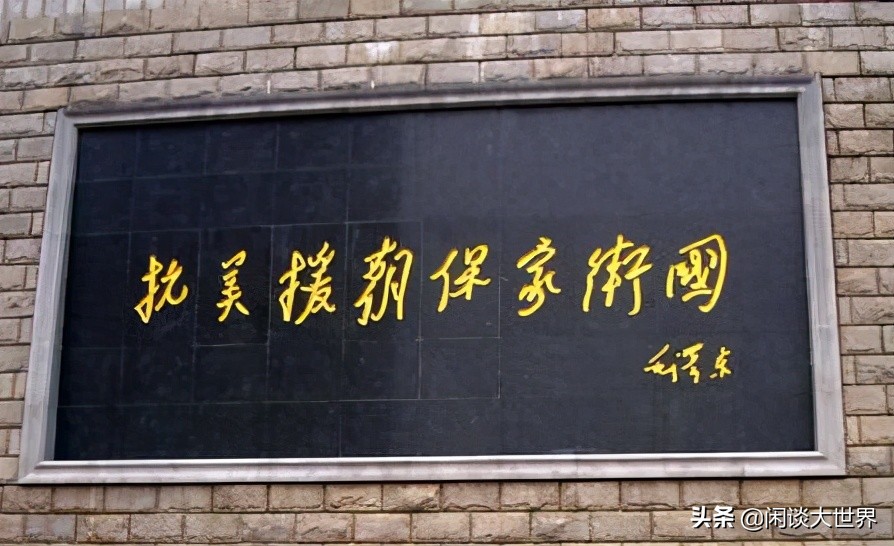 抗美援朝保家衛國
毛澤东
头条 @闲谈大世界